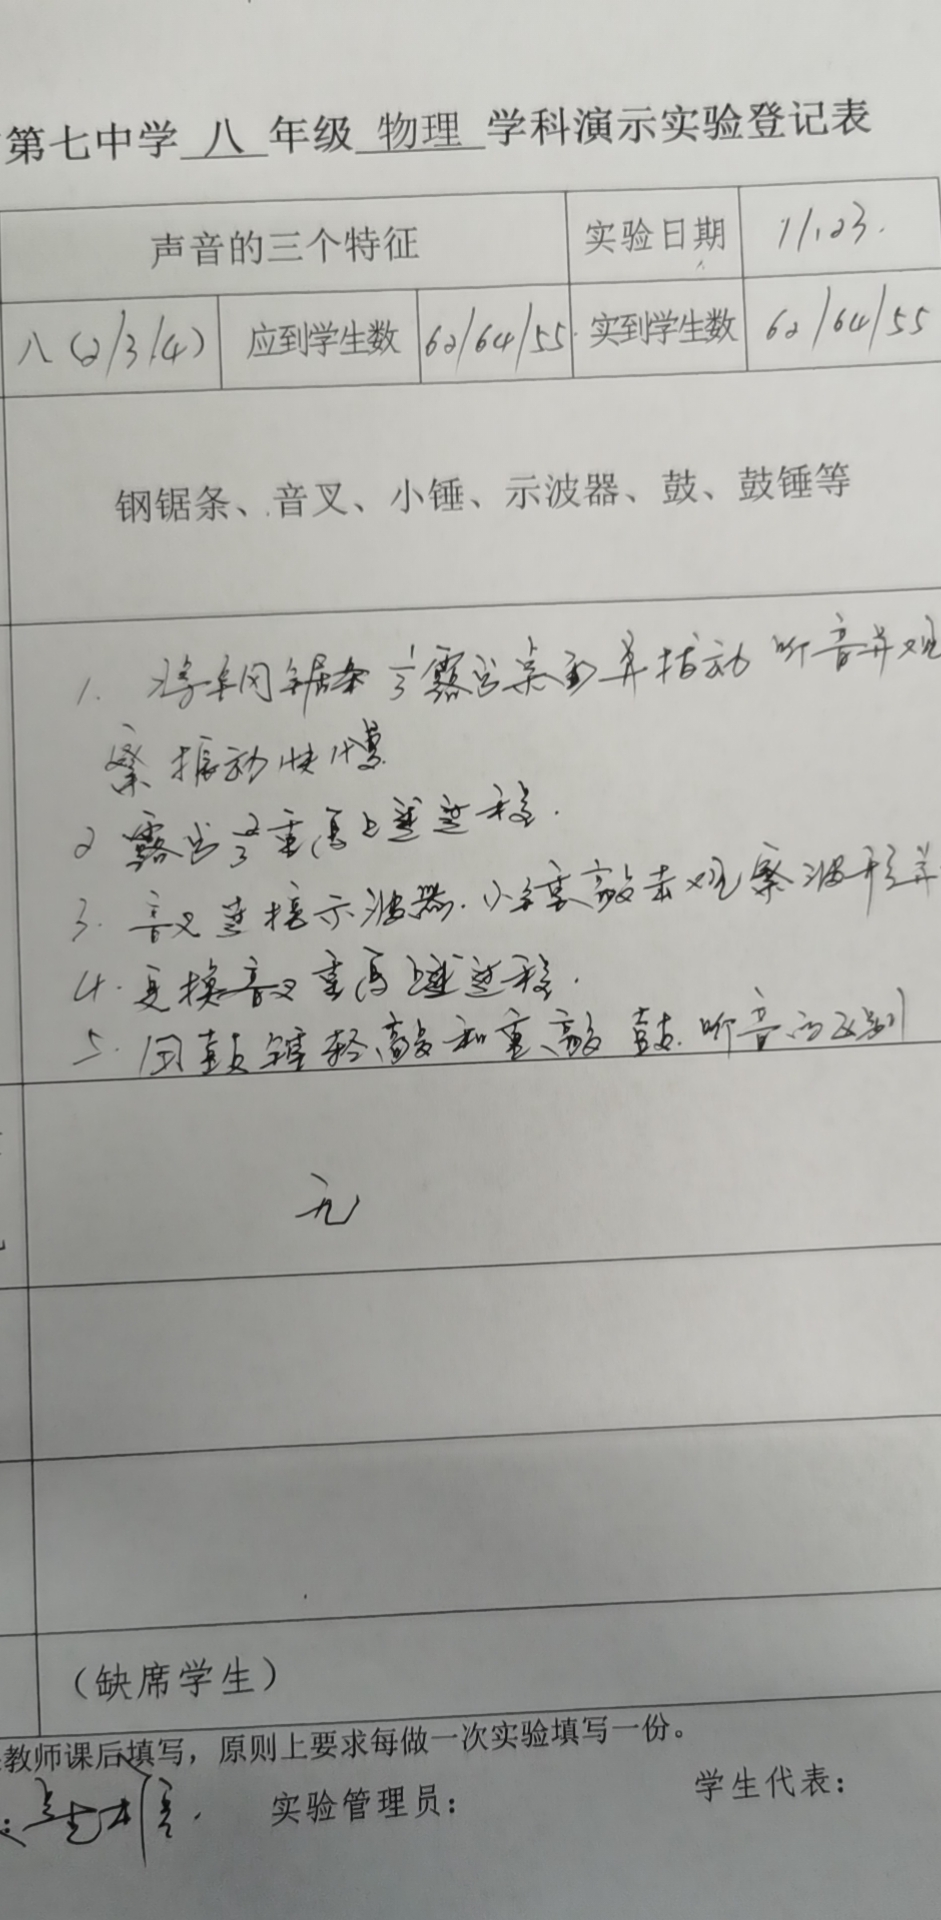 第七中学 八 年级 物理 学科演示实验登记表
声音的三个特征 实验日期 11.23.
八(2/3/4) 应到学生数 62/64/55 实到学生数 62/64/55
钢锯条、音叉、小锤、示波器、鼓、鼓锤等
1. 将钢锯条1/3露出桌面并拨动 听音并观
察振动快慢
2 露出2/3重复上述过程.
3. 音叉连接示波器.小锤敲击观察波形并
4.更换音叉重复上述过程.
5.用鼓锤轻敲和重敲鼓.听音的区别
无
(缺席学生)
教师课后填写，原则上要求每做一次实验填写一份。
实验管理员： 学生代表：